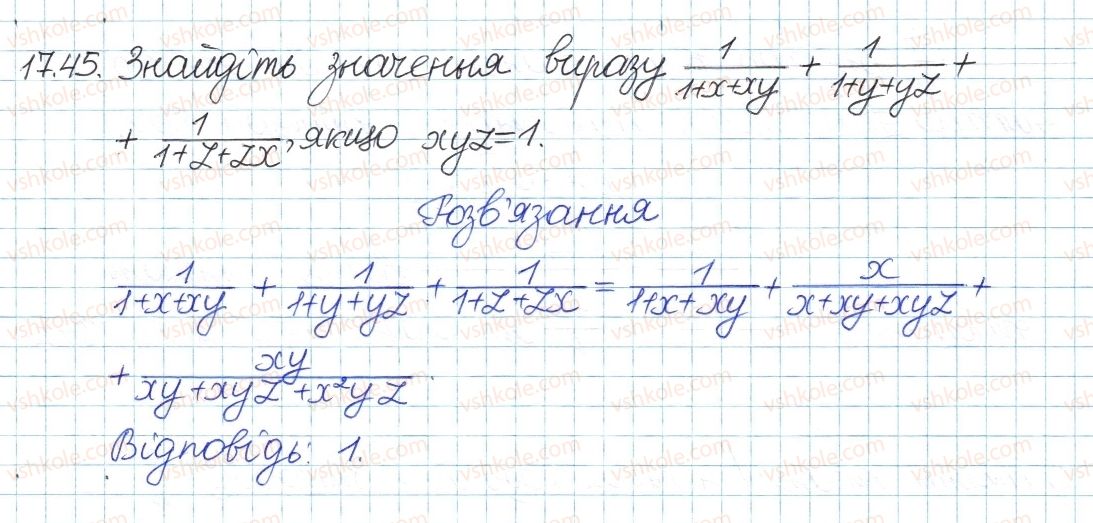 17.45. Знайдіть значення виразу 1/(1+x+xy) + 1/(1+y+yz) +
+ 1/(1+z+zx), якщо xyz=1.
Розв'язання
1/(1+x+xy) + 1/(1+y+yz) + 1/(1+z+zx) = 1/(1+x+xy) + x/(x+xy+xyz) +
+ xy/(xy+xyz+x²yz)
Відповідь: 1.